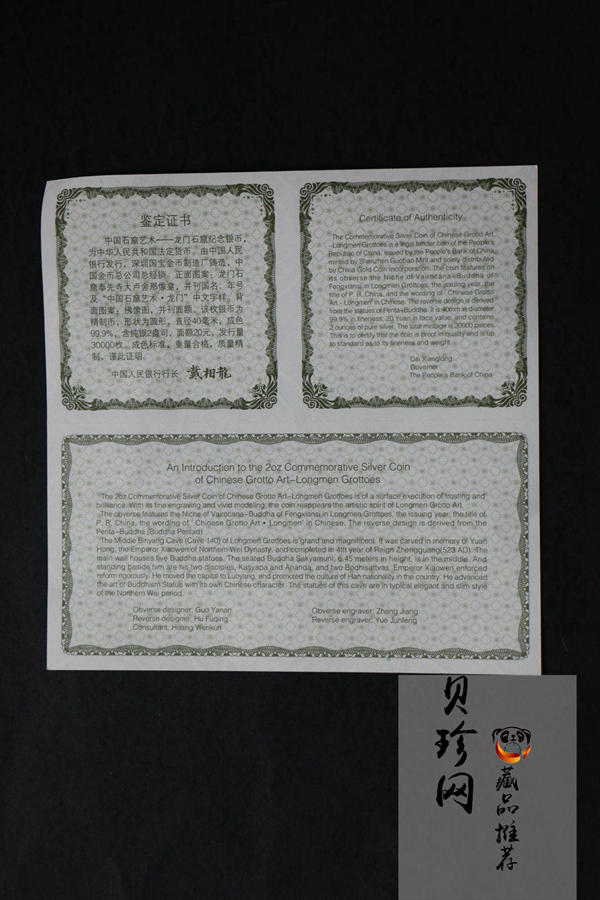 鉴定证书
中国石窟艺术——龙门石窟纪念银币,
为中华人民共和国法定货币。由中国人民
银行发行,深圳国宝金币制造厂铸造,中
国金币总公司总经销。正面图案:龙门石
窟奉先寺大卢舍那像龛,并刊国名、年号
及“中国石窟艺术·龙门”中文字样。背
面图案:佛像图,并刊面额。该枚银币为
精制币,形状为圆形,直径40毫米,成色
99.9%,含纯银2盎司,面额20元,发行量
30000枚。成色标准,重量合格,质量精
制。谨此证明。
中国人民银行行长 戴相龍
Certificate of Authenticity
The Commemorative Silver Coin of Chinese Grotto Art
-Longmen Grottoes is a legal tender coin of the People's
Republic of China, issued by the People's Bank of China,
minted by Shenzhen Guobao Mint and solely distributed
by China Gold Coin Incorporation. The coin features on
its obverse the Niche of Vairocana-Buddha of
Fengxiansi in Longmen Grottoes, the issuing year, the
title of P. R. China, and the wording of ' Chinese Grotto
Art · Longmen' in Chinese. The reverse design is derived
from the statues of Penta-Buddha. It is 40mm in diameter,
99.9% in fineness, 20 Yuan in face value, and contains
2 ounces of pure silver. The total mintage is 30000 pieces.
This is to certify that the coin is proof in quality and is up
to standard as to its fineness and weight.
Dai Xianglong
Governor
The People's Bank of China
An Introduction to the 2oz Commemorative Silver Coin
of Chinese Grotto Art-Longmen Grottoes
The 2oz Commemorative Silver Coin of Chinese Grotto Art-Longmen Grottoes is of a surface execution of frosting and
brilliance. With its fine engraving and vivid modeling, the coin reappears the artistic spirit of Longmen Grotto Art.
The obverse features the Niche of Vairocana-Buddha of Fengxiansi in Longmen Grottoes, the issuing year, the title of
P. R. China, the wording of ' Chinese Grotto Art • Longmen' in Chinese. The reverse design is derived from the
Penta-Buddha (Buddha Pentad)
The Middle Binyang Cave (Cave 140) of Longmen Grottoes is grand and magnificent. It was carved in memory of Yuan
Hong, the Emperor Xiaowen of Northern Wei Dynasty, and completed in 4th year of Reign Zhengguang(523 AD). The
main wall houses five Buddha statues. The seated Buddha Sakyamuni, 6.45 meters in height, is in the middle. And
standing beside him are his two disciples, Kasyapa and Ananda, and two Bodhisattvas. Emperor Xiaowen enforced
reform rigorously. He moved the capital to Luoyang, and promoted the culture of Han nationality in the country. He advanced
the art of Buddhism Statue with its own Chinese character. The statues of this cave are in typical elegant and slim style
of the Northern Wei period.
Obverse designer: Guo Yanan
Reverse designer: Hu Fuqing
Consultant: Huang Wenkun
Obverse engraver: Zhang Jiang
Reverse engraver: Yue Junfeng
贝珍网
藏品推荐